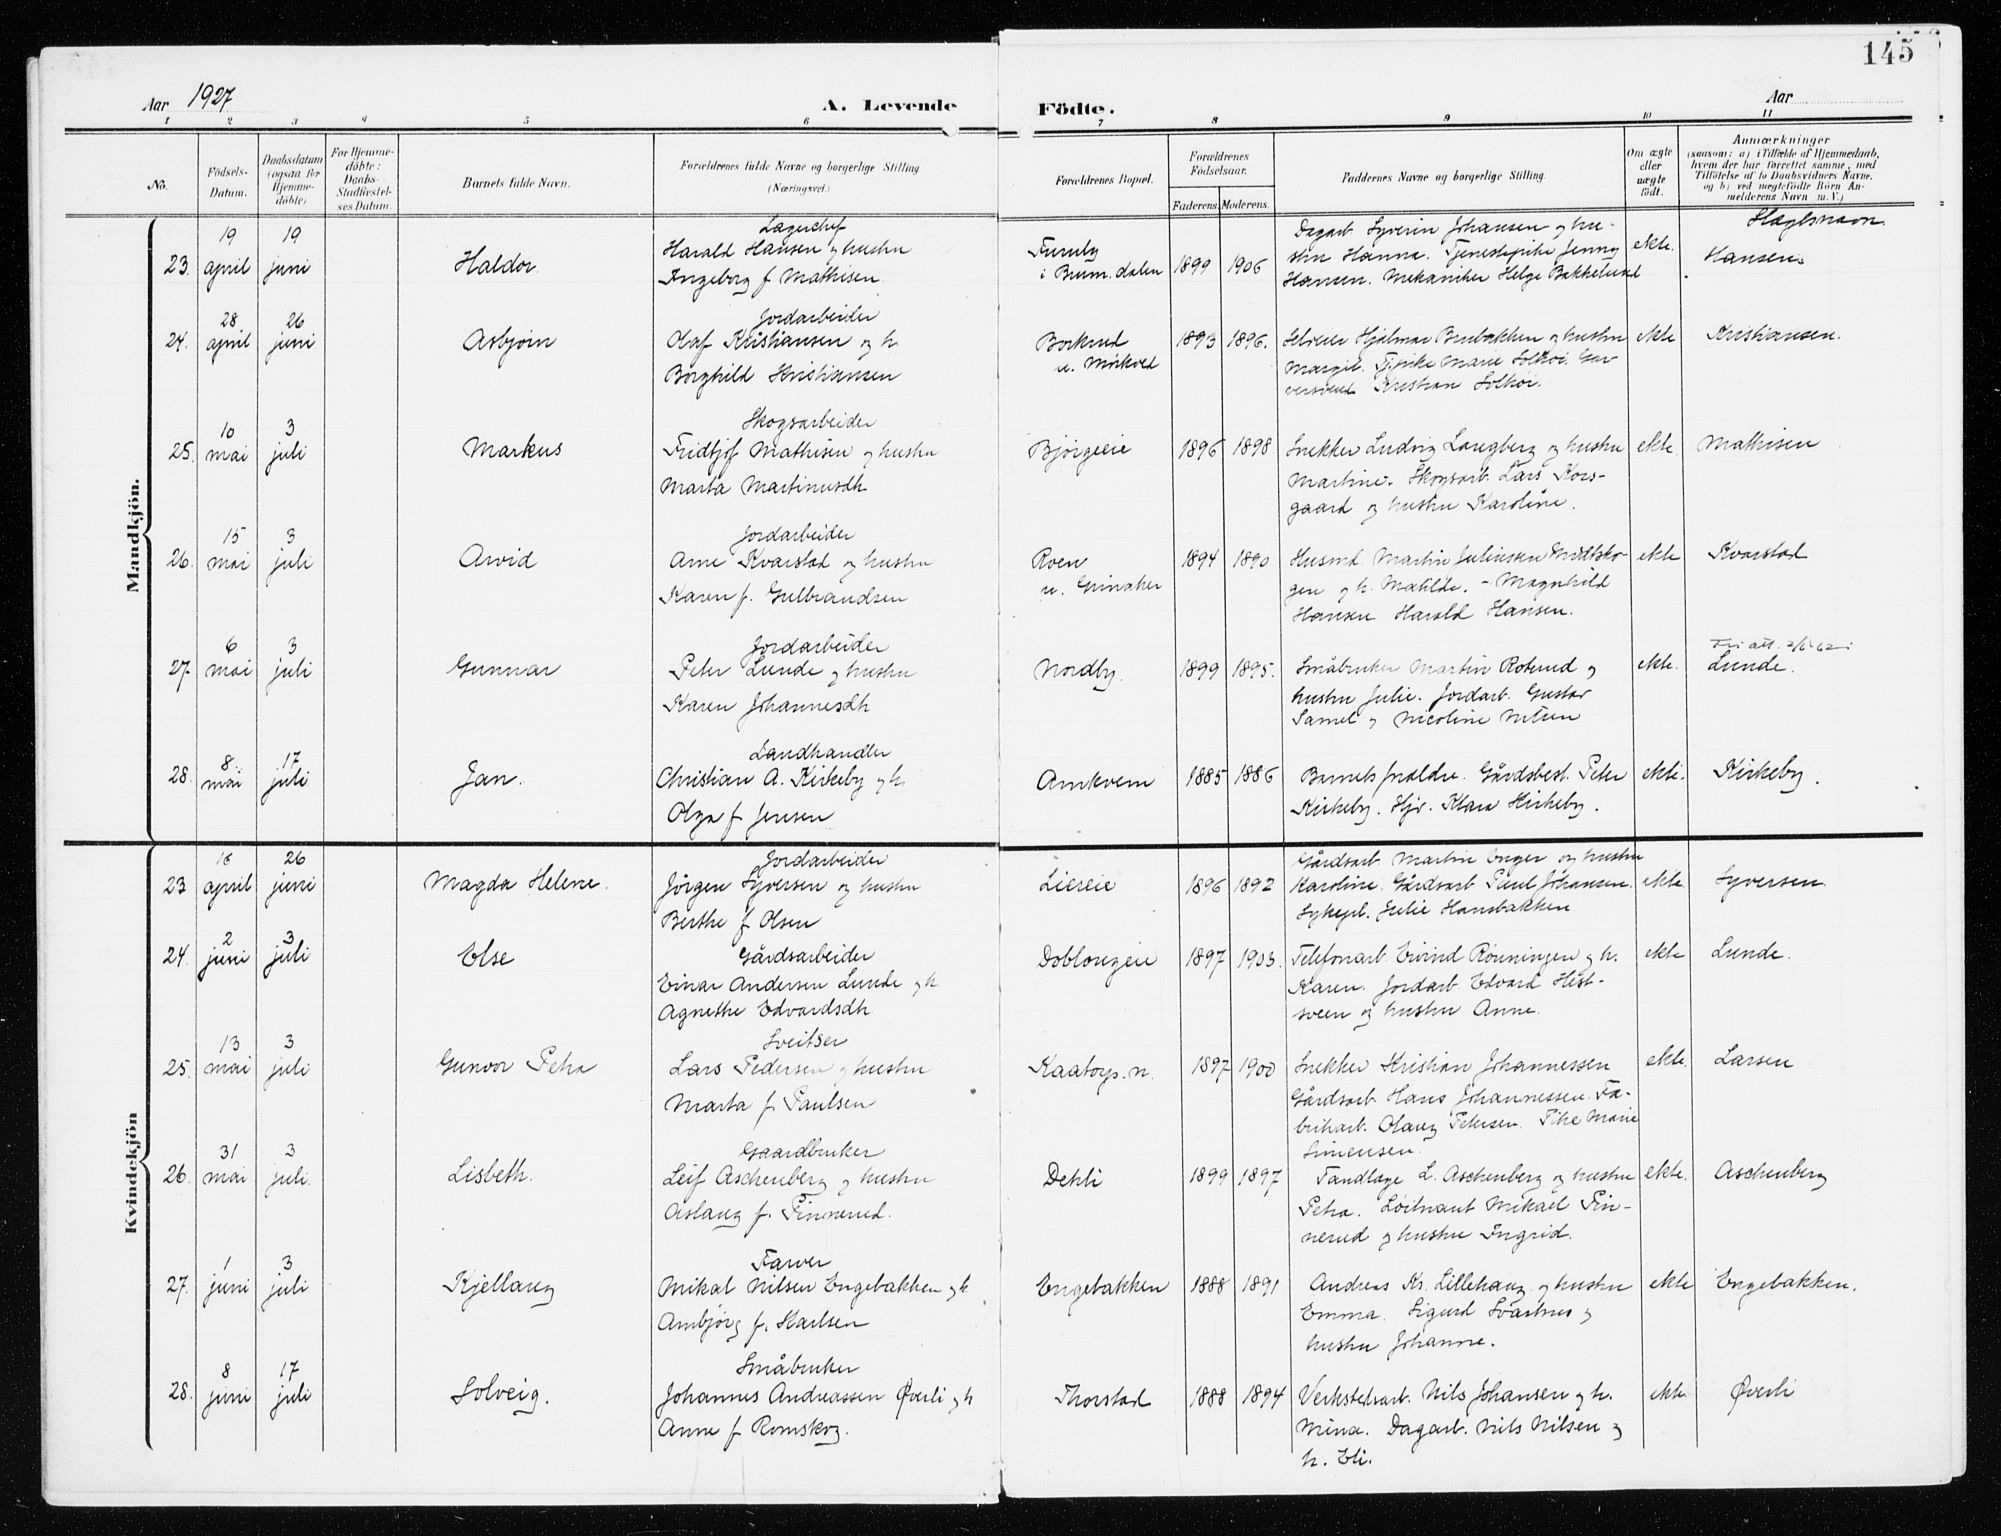 145
Aar 1927
A. Levende Födte.
Aar
1 2 3 4 5 6 7 8 9 10 11
No.
Födsels-Datum.
Daabsdatum (ogsaa for Hjemme-döbte)
For Hjemme-döbte: Daabs-Stadfæstel-ses Datum.
Barnets fulde Navn.
Forældrenes fulde Navne og borgerlige Stilling (Næringsvei.)
Forældrenes Bopæl.
Forældrenes Födselsaar.
Faderens. Moderens.
Faddernes Navne og borgerlige Stilling.
Om ægte eller uægte födt.
Anmærkninger
(saasom: a) i Tilfælde af Hjemmedaab,
hvem der har forrettet samme, med
Tilföielse af to Daabsvidners Navne,
og b) ved uægtefödte Börn An-
melderens Navn m. V.)
Slægtsnavn
Mandkjön.
23. 19 april 19 juni Haldor.
Lagerchef
Harald Hansen og hustru
Ingeborg f. Mathisen
Furuby
i Brum.dalen
1899 1906
Dagarb. Syverin Johansen og hu-
stru Hanna. Tjenestepike Jenny
Hansen. Mekaniker Helge Bakkelund
ekte. Hansen.
24. 28 april 26 juni Asbjørn
Jordarbeider
Olaf Kristiansen og h.
Borghild Kristiansen
Borkrud
u. Mørkved
1893 1896.
Selveier Hjalmar Brubakken og hustru
Margit. Tj.pike Marie Solhøi. Gar-
versvend Kristian Solhøi.
ekte Kristiansen.
25. 10 mai 3 juli Markus
Skogsarbeider
Fridtjof Mathisen og hustru
Marta Martinusdh
Bjørgeeie
1896 1898
Snekker Ludvig Langberg og hustru
Martine. Skogsarb. Lars Kors-
gaard og hustru Karoline.
ekte. Mathisen
26. 15 mai 3 juli Arvid
Jordarbeider
Arne Kvarstad og hustru
Karen f. Gulbrandsen
Roen
u. Grinaker
1894 1890
Husmd. Martin Juliussen Midtsko-
gen og h. Matilde. - Magnhild
Hansen Harald Hansen.
ekte Kvarstad
27. 6 mai 3 juli Gunnar
Jordarbeider
Peter Lunde og hustru
Karen Johannesdh
Nordby.
1899 1895.
Småbruker Martin Roterud og
hustru Julie. Jordarb. Gustav
Samel og Nicoline
ekte. Lunde.
28. 8 mai 17 juli Jan.
Landhandler
Christian A. Kirkeby og h.
Olga f. Jensen
Arnkvern
1885 1886
Barnets forældre. Gårdsbest. Peter
Kirkeby. Hjr. Klara Kirkeby.
ekte. Kirkeby.
Kvindekjön
23 april 26 juni Magda Helene.
Jordarbeider
Jørgen Syversen og hustru
Berthe f Olsen
Liereie
1896 1892
Gårdsarb. Martin Enger og hustru
Karoline. Gårdsarb Paul Johansen.
Sykepl. Julie Hansbakken
ekte. Syversen.
24. 2 juni 3 juli Else
Gårdsarbeider
Einar Andersen Lunde og h.
Agnethe Edvardsdh
Doblougeie
1897 1903.
Telefonarb. Eivind Rønningen og h.
Karen. Jordarb. Edvard Hest-
sveen og hustru Anne.
ekte Lunde.
25. 13 mai 3 juli Gunvor Petra
Sveitser
Lars Pedersen og hustru
Marta f Paulsen
Kaatorp. n.
1897 1900
Snekker Kristian Johannessen
Gårdsarb. Hans Johannessen. Fa-
brikarb. Olaug Petersen. Pike Marie
Simensen.
ekte. Larsen
26. 31 mai 3 juli. Lisbeth.
Gaardbruker
Leif Aschenberg og hustru
Aslaug f. Finnerud.
Dehli
1899 1897
Tandlæge L. Aschenberg og hustru
Petra. Løitnant Mikael Fin-
nerud og hustru Ingrid.
ekte. Aschenberg
27. 1 juni 3 juli Kjellaug
Farver
Mikal Nilsen Engebakken og h
Ambjørg f. Karlsen
Engebakken
1888 1891
Andreas Kr. Lillehaug og hustru
Emma. Sigurd Svartnes og
hustru Johanne.
ekte Engebakken.
28. 8 juni 17 juli Solveig.
Småbruker
Johannes Andreassen Øverli og h
Anne f Romskog.
Thorstad
1888 1894
Verkstedsarb. Nils Johansen og h.
Mina. Dagarb. Nils Nilsen og
h. Eli.
ekte. Øverli